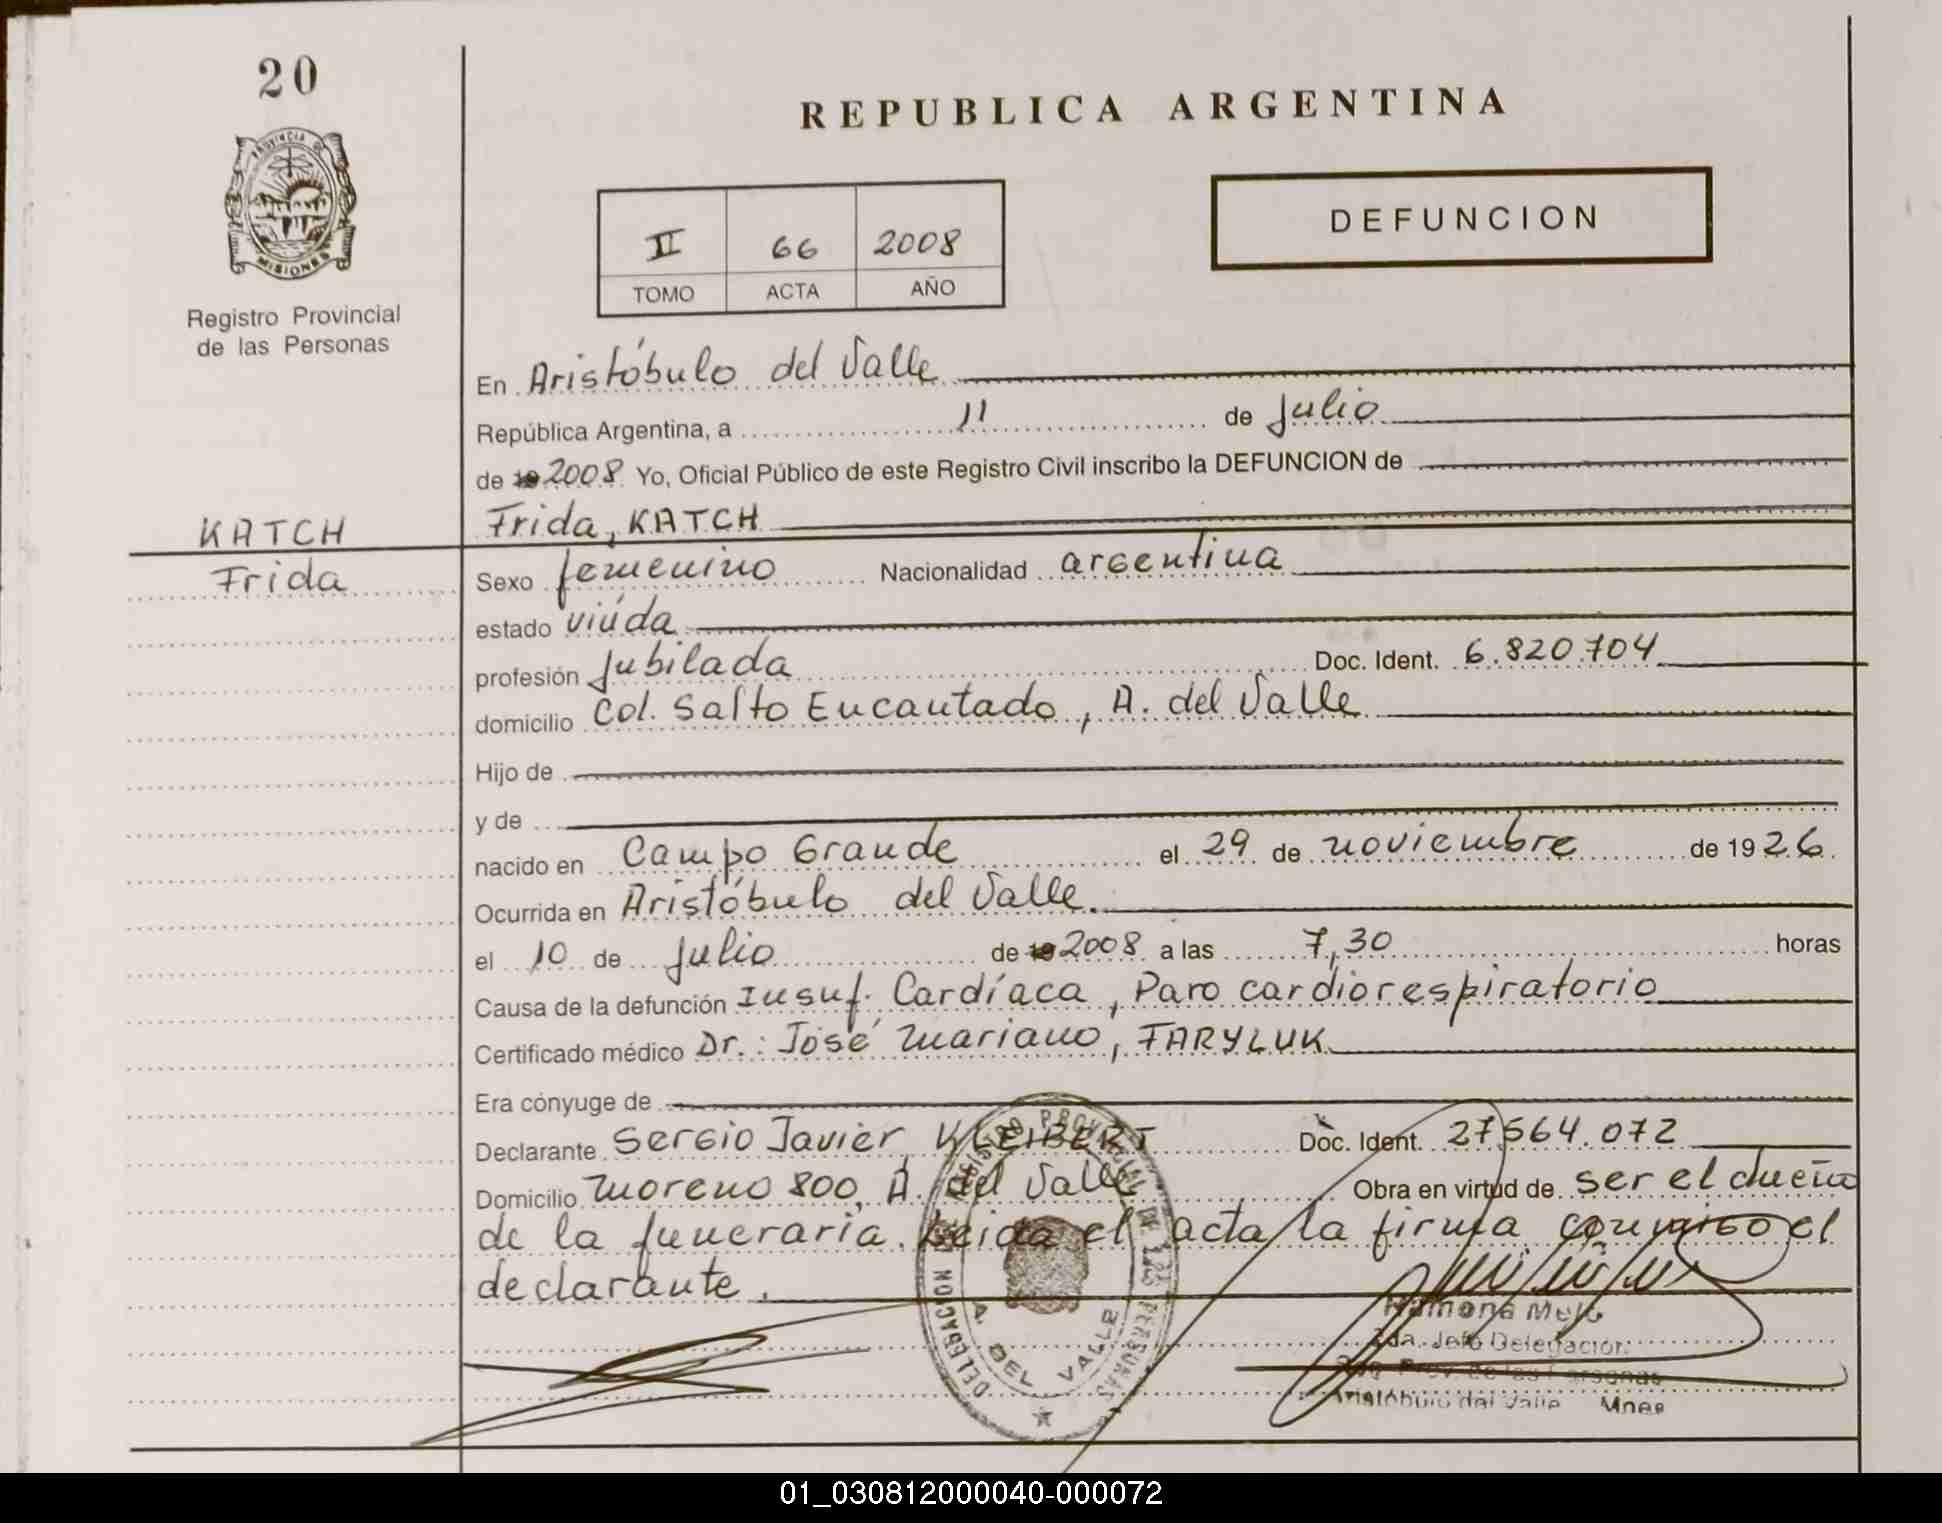 20
REPUBLICA ARGENTINA
PROVINCIA DE
MISIONES
Registro Provincial
de las Personas
DEFUNCION
II 66 2008
TOMO ACTA AÑO
En Aristóbulo del Valle
República Argentina, a 11 de Julio
de 19 2008 Yo, Oficial Público de este Registro Civil inscribo la DEFUNCION de
KATCH
Frida
Frida, KATCH
Sexo femenino Nacionalidad argentina
estado viúda
profesión Jubilada Doc. Ident. 6.820.704
domicilio Col. Salto Encantado, A. del Valle
Hijo de
y de
nacido en Campo Grande el 29 de noviembre de 1926.
Ocurrida en Aristóbulo del Valle.
el 10 de Julio de 19 2008 a las 7,30 horas
Causa de la defunción Insuf. Cardíaca, Paro cardiorespiratorio
Certificado médico Dr.: José Mariano, TARYLUK
Era cónyuge de
Declarante Sergio Javier, KLEIBERT Doc. Ident. 27.564.072
Domicilio Moreno 800, A. del Valle Obra en virtud de ser el dueño
de la funeraria. Leida el acta la firma conmigo el
declarante.
DELEGACION A. DEL VALLE
REGISTRO PROVINCIAL DE LAS PERSONAS
Ramona Melo
2da. Jefe Delegación
Reg. Prov. de las Personas
Aristóbulo del Valle Mnes
01_030812000040-000072